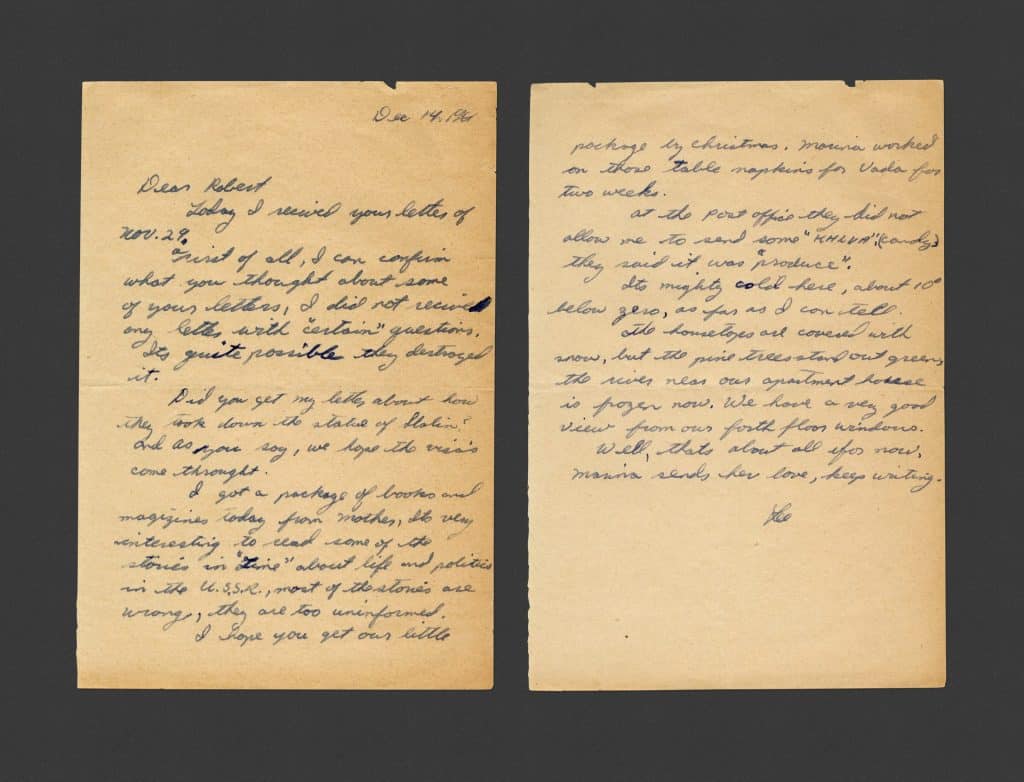 Dec 14, 1961
Dear Robert
Today I recived your letter of
Nov. 29.
First of all, I can confirm
what you thought about some
of your letters, I did not recived
any letter with "certain" questions.
Its quite possible they destroyed
it.
Did you get my letter about how
they took down the statue of Stalin?
And as you say, we hope the visa's
come throught.
I got a package of books and
magizines today from mother, Its very
interesting to read some of the
stories in "Time" about life and politics
in the U.S.S.R., most of the stories are
wrong, they are too uninformed.
I hope you get our little
package by christmas. Marina worked
on those table napkins for Vada for
two weeks.
at the post office they did not
allow me to send some "KHALVA" (candy)
they said it was "produce".
Its mighty cold here, about 10°
below zero, as far as I can tell.
The housetops are covered with
snow, but the pine trees stand out green,
the river near our apartment house
is frozen now. We have a very good
view from our forth floor windows.
Well, thats about all for now.
Marina sends her love, keep writing.